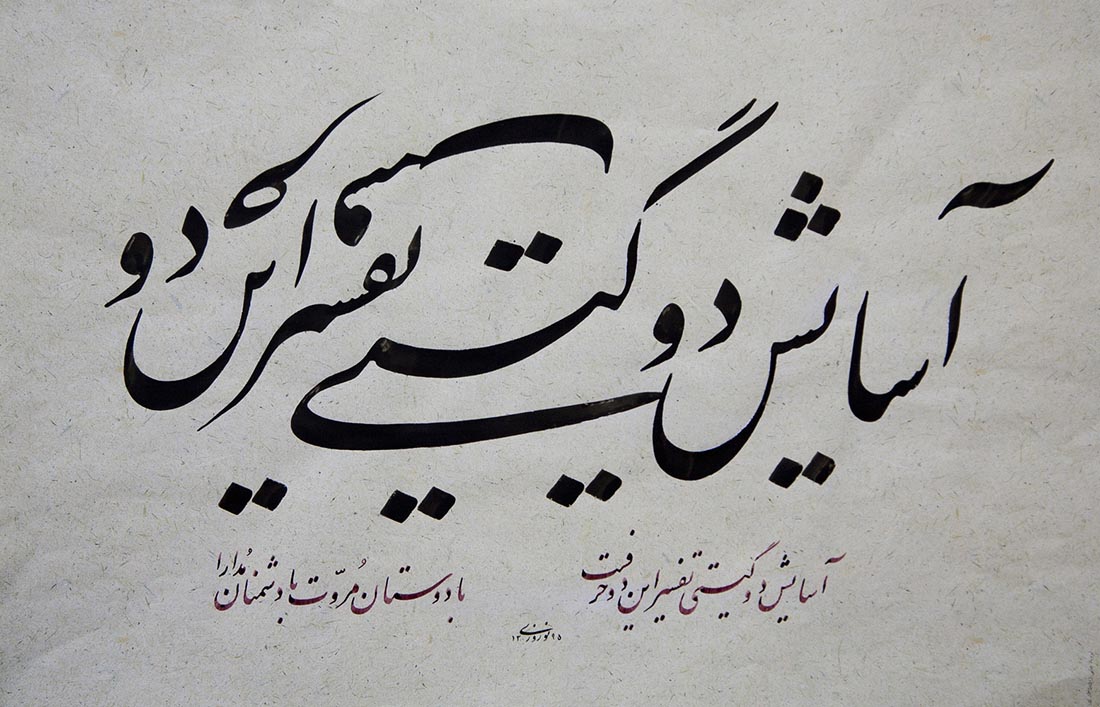 آسایش دو گیتی تفسیر این دو حرفست
آسایش دو گیتی تفسیر این دو حرفست
با دوستان مُروّت با دشمنان مُدارا
نوروزی ۱۳۹۵